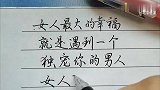 女人最大的幸福
就是遇到一个
独宠你的男人
女人